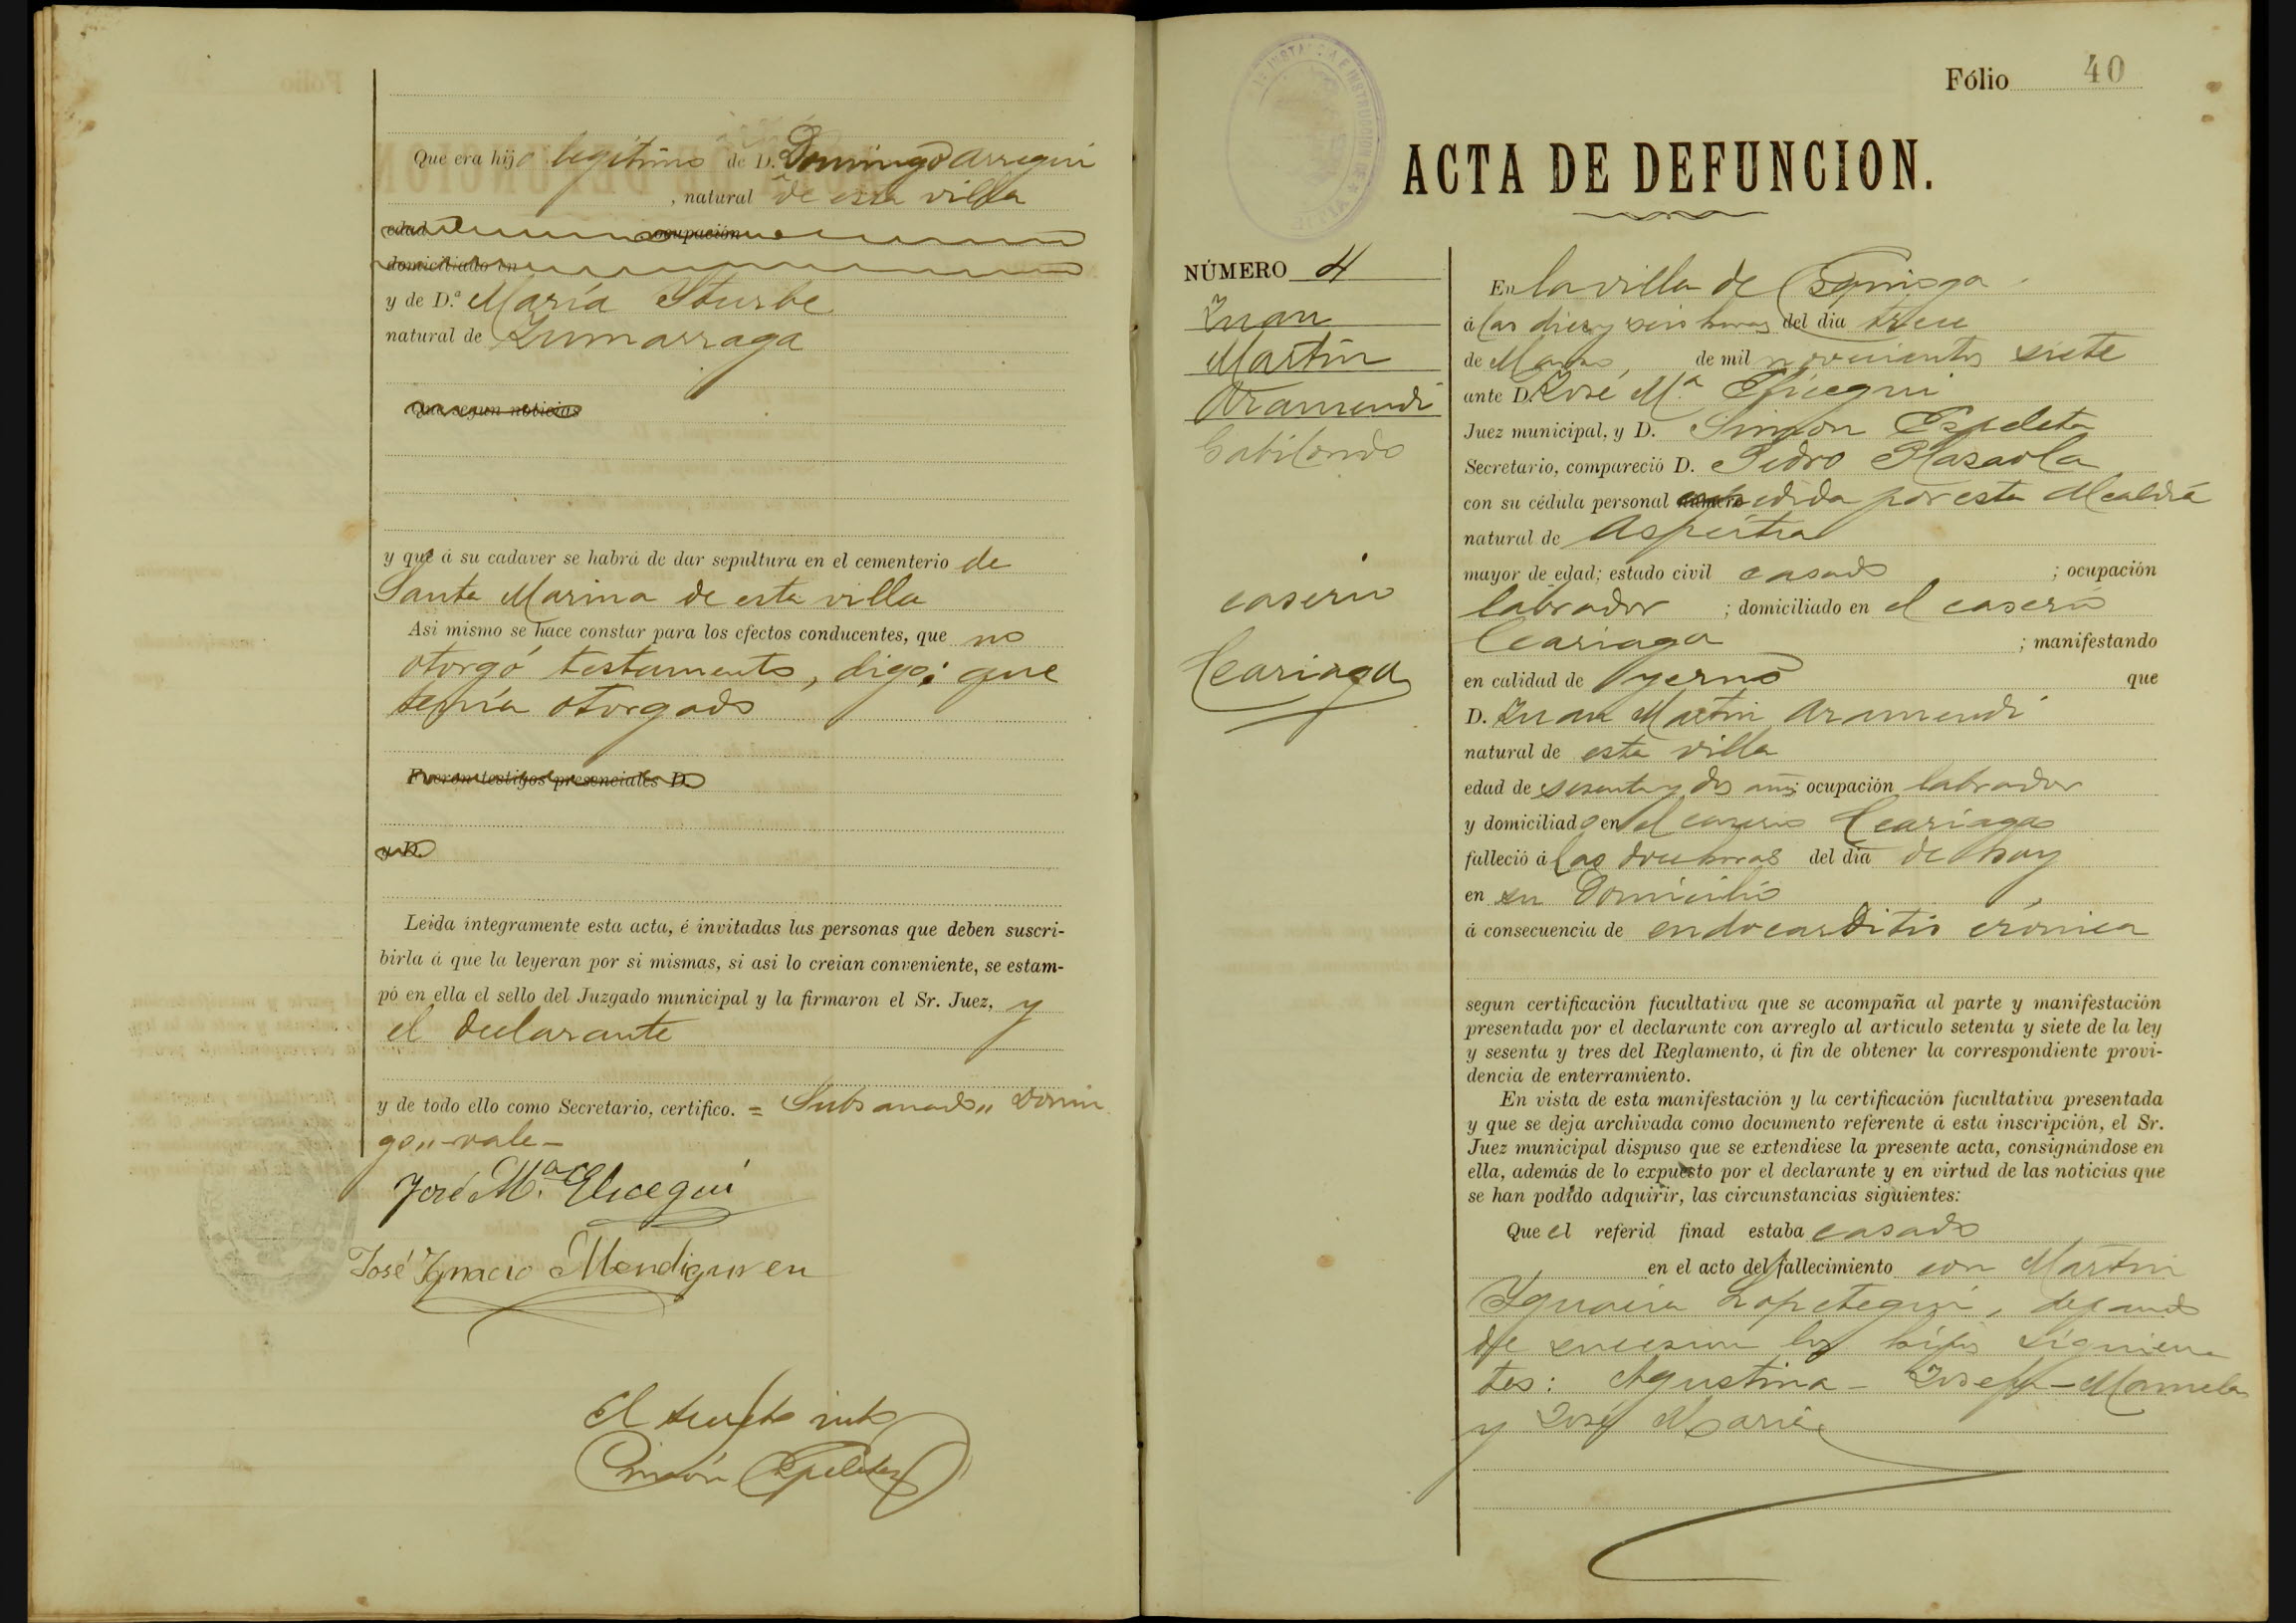 Que era hijo legitimo de D. Domingo Arregui
, natural de esta villa
edad ocupación
domiciliado en
y de D.ª María Iturbe
natural de Zumarraga
Que segun noticias
y que á su cadaver se habrá de dar sepultura en el cementerio de
Santa Marina de esta villa
Asi mismo se hace constar para los efectos conducentes, que no
otorgó testamento, digo: que
tenía otorgado
Fueron testigos presenciales D.
y D.
Leida íntegramente esta acta, é invitadas las personas que deben suscri-
birla á que la leyeran por si mismas, si asi lo creian conveniente, se estam-
pó en ella el sello del Juzgado municipal y la firmaron el Sr. Juez, y
el declarante
y de todo ello como Secretario, certifico. = Subsanado „ Domin
go „ vale –
José M.ª Elicegui
José Ygnacio Mendiguren
El secreto into
Simón Espeleta
Fólio 40
ACTA DE DEFUNCION.
NÚMERO 4
Juan
Martín
Aramendi
Gabilondo
caserío
Leariaga
En la villa de Ezquioga
á las diez y seis horas del dia trece
de Marzo, de mil novecientos siete
ante D. José M.ª Elicegui
Juez municipal, y D. Simón Espeleta
Secretario, compareció D. Pedro Plazaola
con su cédula personal número expedida por esta Alcaldía
natural de Azpeitia
mayor de edad; estado civil casado ; ocupación
labrador ; domiciliado en el caserío
Leariaga ; manifestando
en calidad de yerno que
D. Juan Martín Aramendi
natural de esta villa
edad de sesenta y dos años ocupación labrador
y domiciliado en el caserío Leariaga
falleció á las doce horas del dia de hoy
en su domicilio
á consecuencia de endocarditis crónica
segun certificación facultativa que se acompaña al parte y manifestación
presentada por el declarante con arreglo al articulo setenta y siete de la ley
y sesenta y tres del Reglamento, á fin de obtener la correspondiente provi-
dencia de enterramiento.
En vista de esta manifestación y la certificación facultativa presentada
y que se deja archivada como documento referente á esta inscripción, el Sr.
Juez municipal dispuso que se extendiese la presente acta, consignándose en
ella, además de lo expuesto por el declarante y en virtud de las noticias que
se han podido adquirir, las circunstancias siguientes:
Que el referid finad estaba casado
en el acto del fallecimiento con Martin
Ygnacia Lopetegui, dejando
de sucesion los hijos siguien
tes: Agustina – Josefa – Manuela
y José Maria